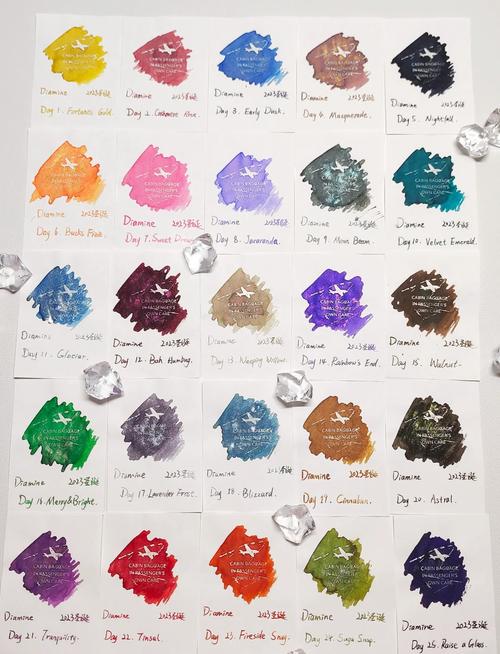 CABIN BAGGAGE
IN PASSENGER'S
OWN CARE
Diamine 2023圣诞
Day 1. Fortune's Gold.
CABIN BAGGAGE
IN PASSENGER'S
OWN CARE
Diamine 2023圣诞
Day 2. Cashmere Rose.
CABIN BAGGAGE
IN PASSENGER'S
OWN CARE
Diamine 2023圣诞
Day 3. Early Dusk.
CABIN BAGGAGE
IN PASSENGER'S
OWN CARE
Diamine 2023圣诞
Day 4. Masquerade.
CABIN BAGGAGE
IN PASSENGER'S
OWN CARE
Diamine 2023圣诞
Day 5. Nightfall.
CABIN BAGGAGE
IN PASSENGER'S
OWN CARE
Diamine 2023圣诞
Day 6. Bucks Fizz.
CABIN BAGGAGE
IN PASSENGER'S
OWN CARE
Diamine 2023圣诞
Day 7. Sweet Dreams
CABIN BAGGAGE
IN PASSENGER'S
OWN CARE
Diamine 2023圣诞
Day 8. Jacaranda.
CABIN BAGGAGE
IN PASSENGER'S
OWN CARE
Diamine 2023圣诞
Day 9. Moon Beam.
CABIN BAGGAGE
IN PASSENGER'S
OWN CARE
Diamine 2023圣诞
Day 10. Velvet Emerald.
CABIN BAGGAGE
IN PASSENGER'S
OWN CARE
Diamine 2023圣诞
Day 11. Glacier.
CABIN BAGGAGE
IN PASSENGER'S
OWN CARE
Diamine 2023圣诞
Day 12. Bah Humbug.
CABIN BAGGAGE
IN PASSENGER'S
OWN CARE
Diamine 2023圣诞
Day 13. Weeping Willow.
CABIN BAGGAGE
IN PASSENGER'S
OWN CARE
Diamine 2023圣诞
Day 14. Rainbow's End.
CABIN BAGGAGE
IN PASSENGER'S
OWN CARE
Diamine 2023圣诞
Day 15. Walnut.
CABIN BAGGAGE
IN PASSENGER'S
OWN CARE
Diamine 2023圣诞
Day 16. Merry&Bright.
CABIN BAGGAGE
IN PASSENGER'S
OWN CARE
Diamine 2023圣诞
Day 17. Lavender Frost.
CABIN BAGGAGE
IN PASSENGER'S
OWN CARE
Diamine 2023圣诞
Day 18. Blizzard.
CABIN BAGGAGE
IN PASSENGER'S
OWN CARE
Diamine 2023圣诞
Day 19. Cinnabun.
CABIN BAGGAGE
IN PASSENGER'S
OWN CARE
Diamine 2023圣诞
Day 20. Astral.
CABIN BAGGAGE
IN PASSENGER'S
OWN CARE
Diamine 2023圣诞
Day 21. Tranquility.
CABIN BAGGAGE
IN PASSENGER'S
OWN CARE
Diamine 2023圣诞
Day 22. Tinsel.
CABIN BAGGAGE
IN PASSENGER'S
OWN CARE
Diamine 2023圣诞
Day 23. Fireside Snug.
CABIN BAGGAGE
IN PASSENGER'S
OWN CARE
Diamine 2023圣诞
Day 24. Suga Snap.
CABIN BAGGAGE
IN PASSENGER'S
OWN CARE
Diamine 2023圣诞
Day 25. Raise a Glass.